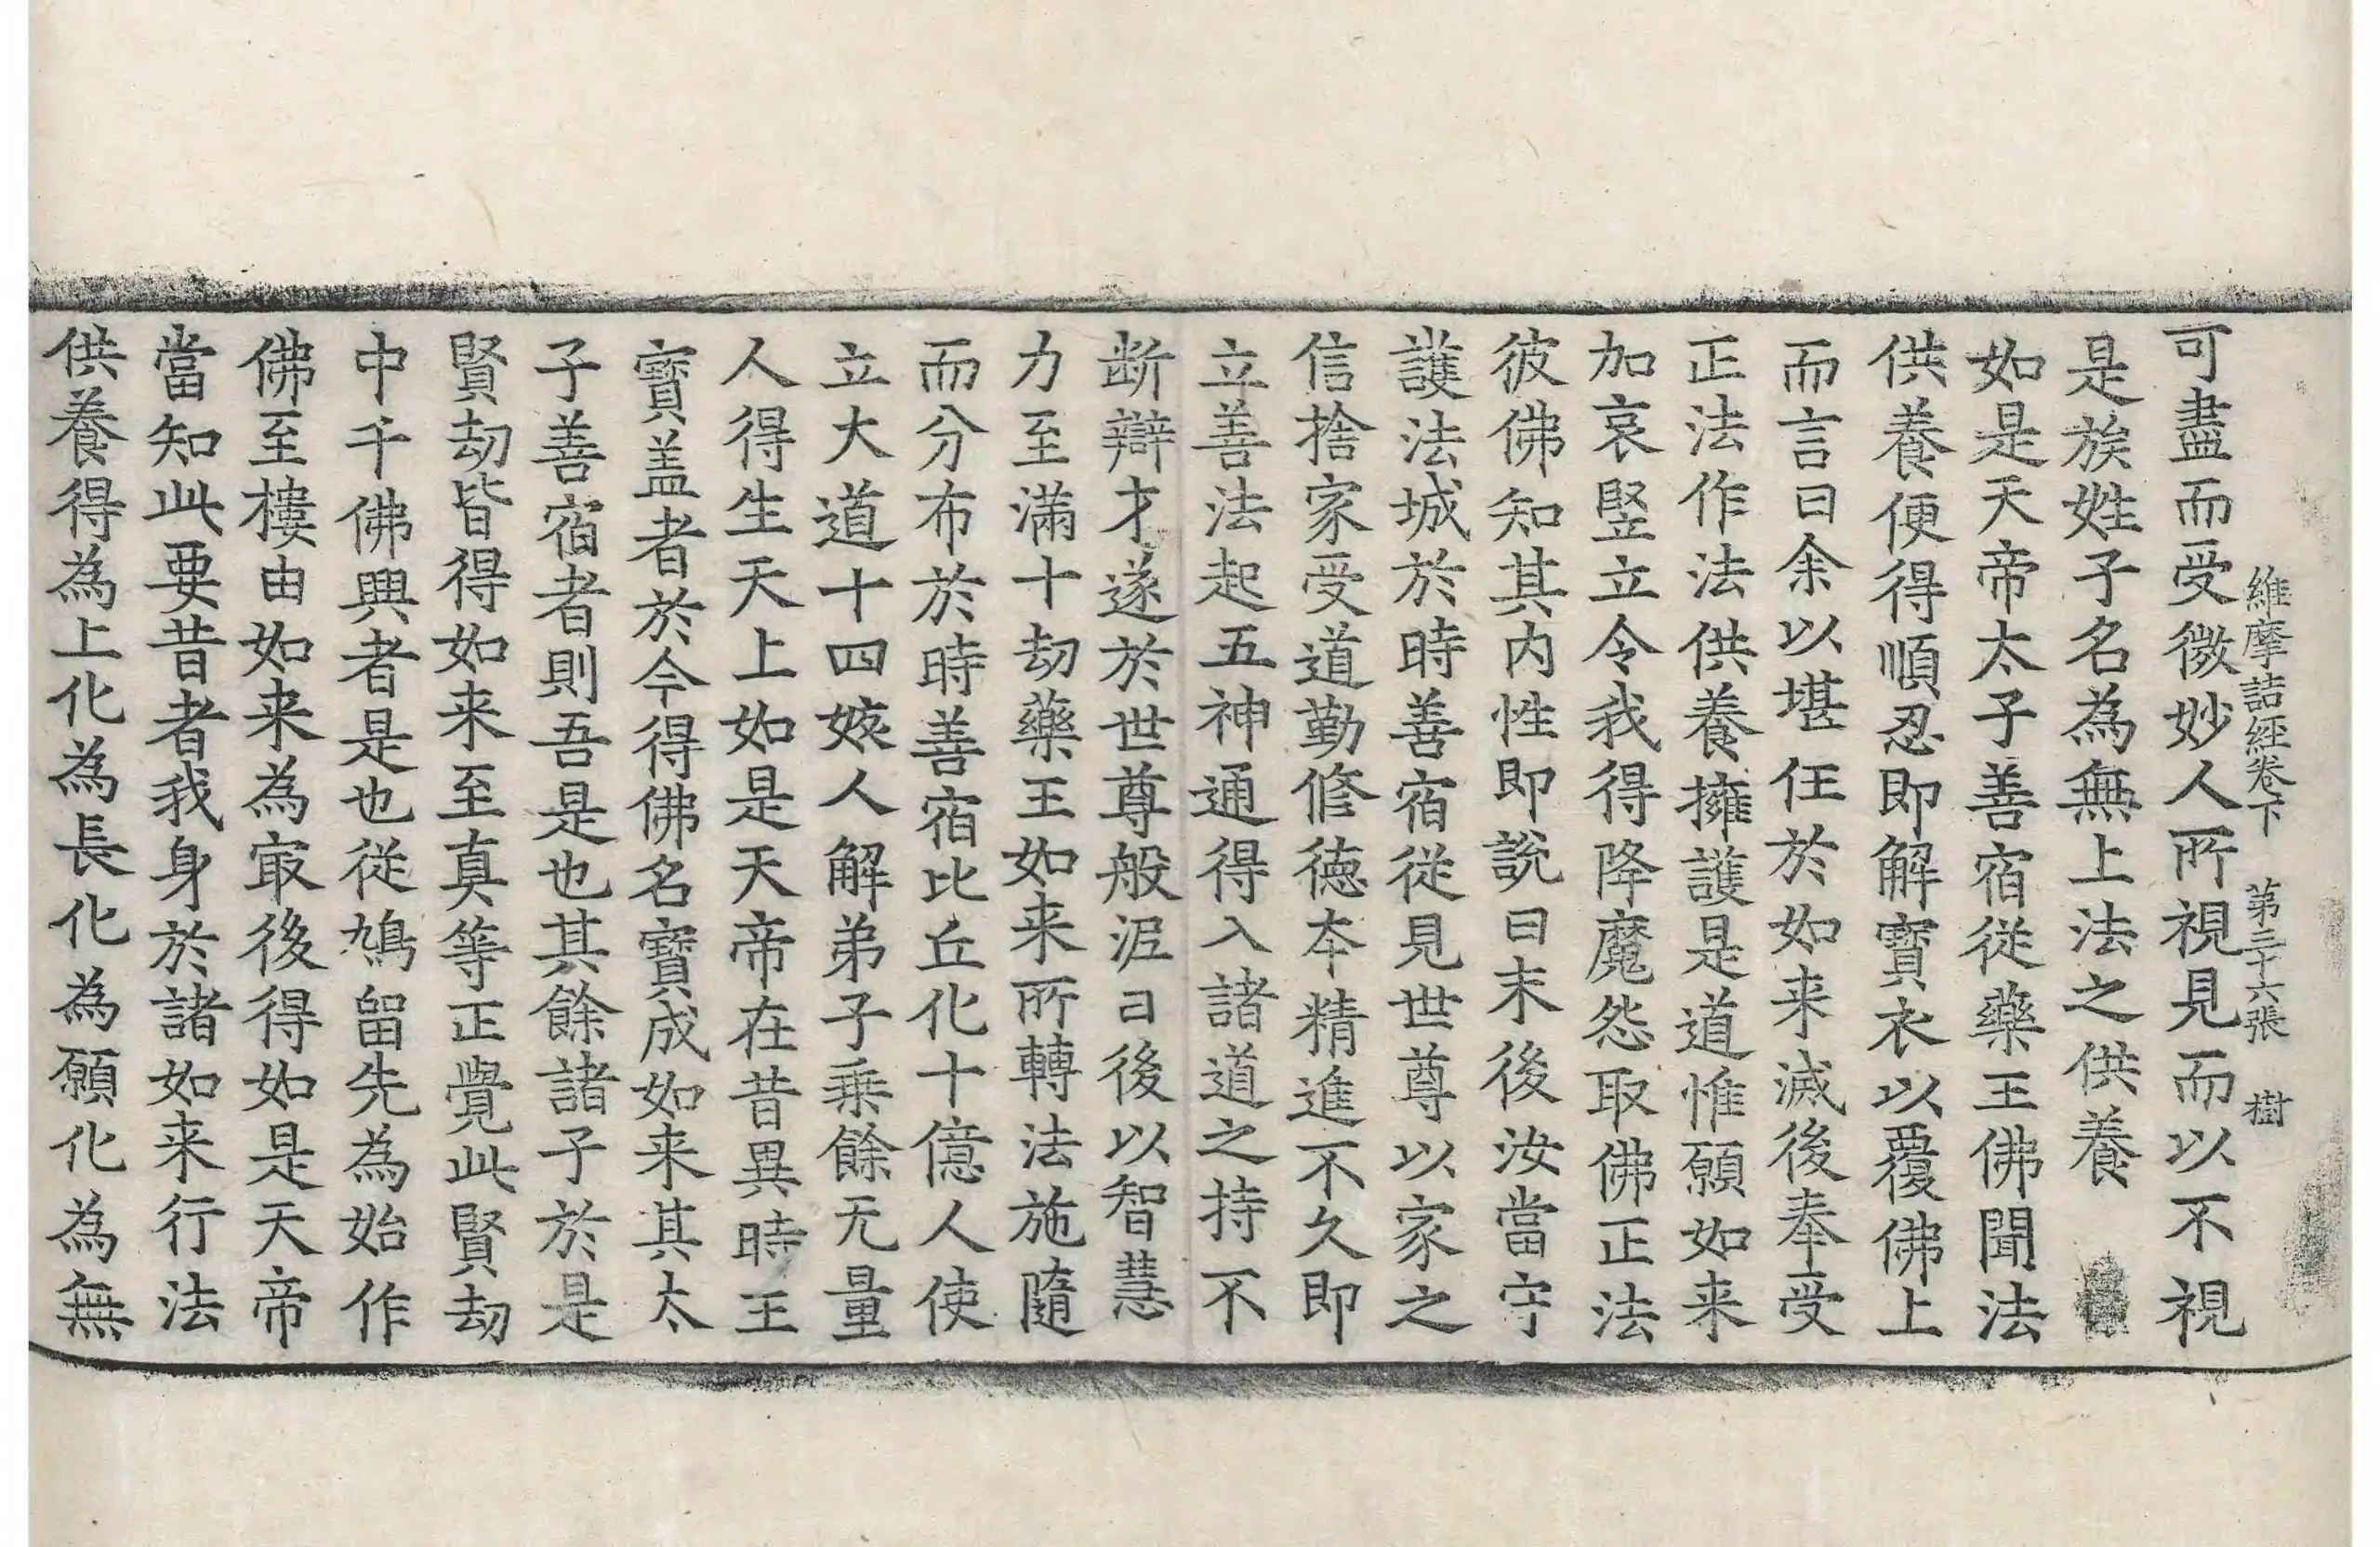 維摩詰經卷下 第三十六張 樹
可盡而受微妙人所視見而以不視
是族姓子名為無上法之供養
如是天帝太子善宿從藥王佛聞法
供養便得順忍即解寳衣以覆佛上
而言曰余以堪任於如来滅後奉受
正法作法供養擁護是道惟願如来
加哀竪立令我得降魔怨取佛正法
彼佛知其内性即說曰末後汝當守
護法城於時善宿從見世尊以家之
信捨家受道勤修徳夲精進不久即
立善法起五神通得入諸道之持不
断辯才遂於世尊般泥曰後以智慧
力至滿十劫藥王如来所轉法施隨
而分布於時善宿比丘化十億人使
立大道十四姟人解弟子乗餘无量
人得生天上如是天帝在昔異時王
寳盖者於今得佛名寳成如来其太
子善宿者則吾是也其餘諸子於是
賢劫皆得如来至真等正覺此賢劫
中千佛興者是也從鳩留先為始作
佛至樓由如来為㝡後得如是天帝
當知此要昔者我身於諸如来行法
供養得為上化為長化為願化為無